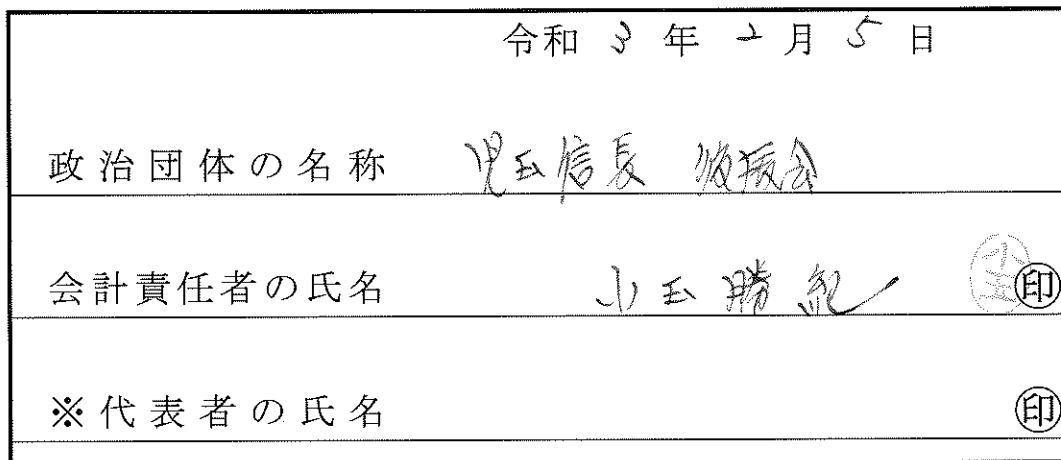 令和 3 年 2 月 5 日
政治団体の名称 児玉信長 後援会
会計責任者の氏名 小玉勝紀 小玉 印
※代表者の氏名 印